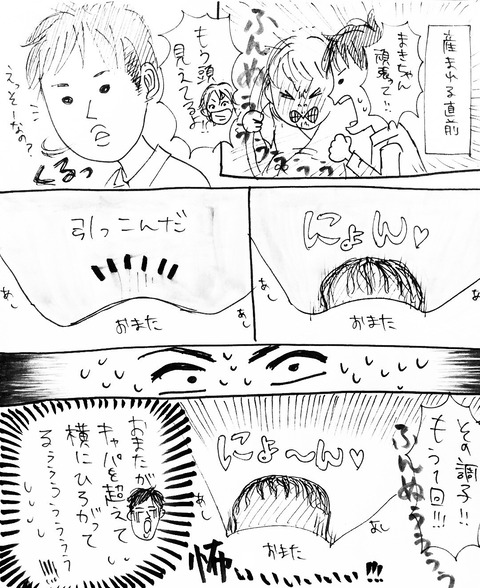 産まれる直前
まきちゃん
頑張って!!
ふんぬぅぅ
ううぅぬぅぅぅ
もう頭
見えてるよ!!
えっそーなの?
くるっ
にょん♡
あし
あし
おまた
引っこんだ
あし
あし
おまた
その調子!!
もう1回!!!
ふんぬぅうぅぅぅ
にょ〜ん♡
あし
あし
おまた
怖いいいいい!!!
おまたが
キャパを超えて
横にひろがって
るぅぅぅぅぅぅぅ
!!!!